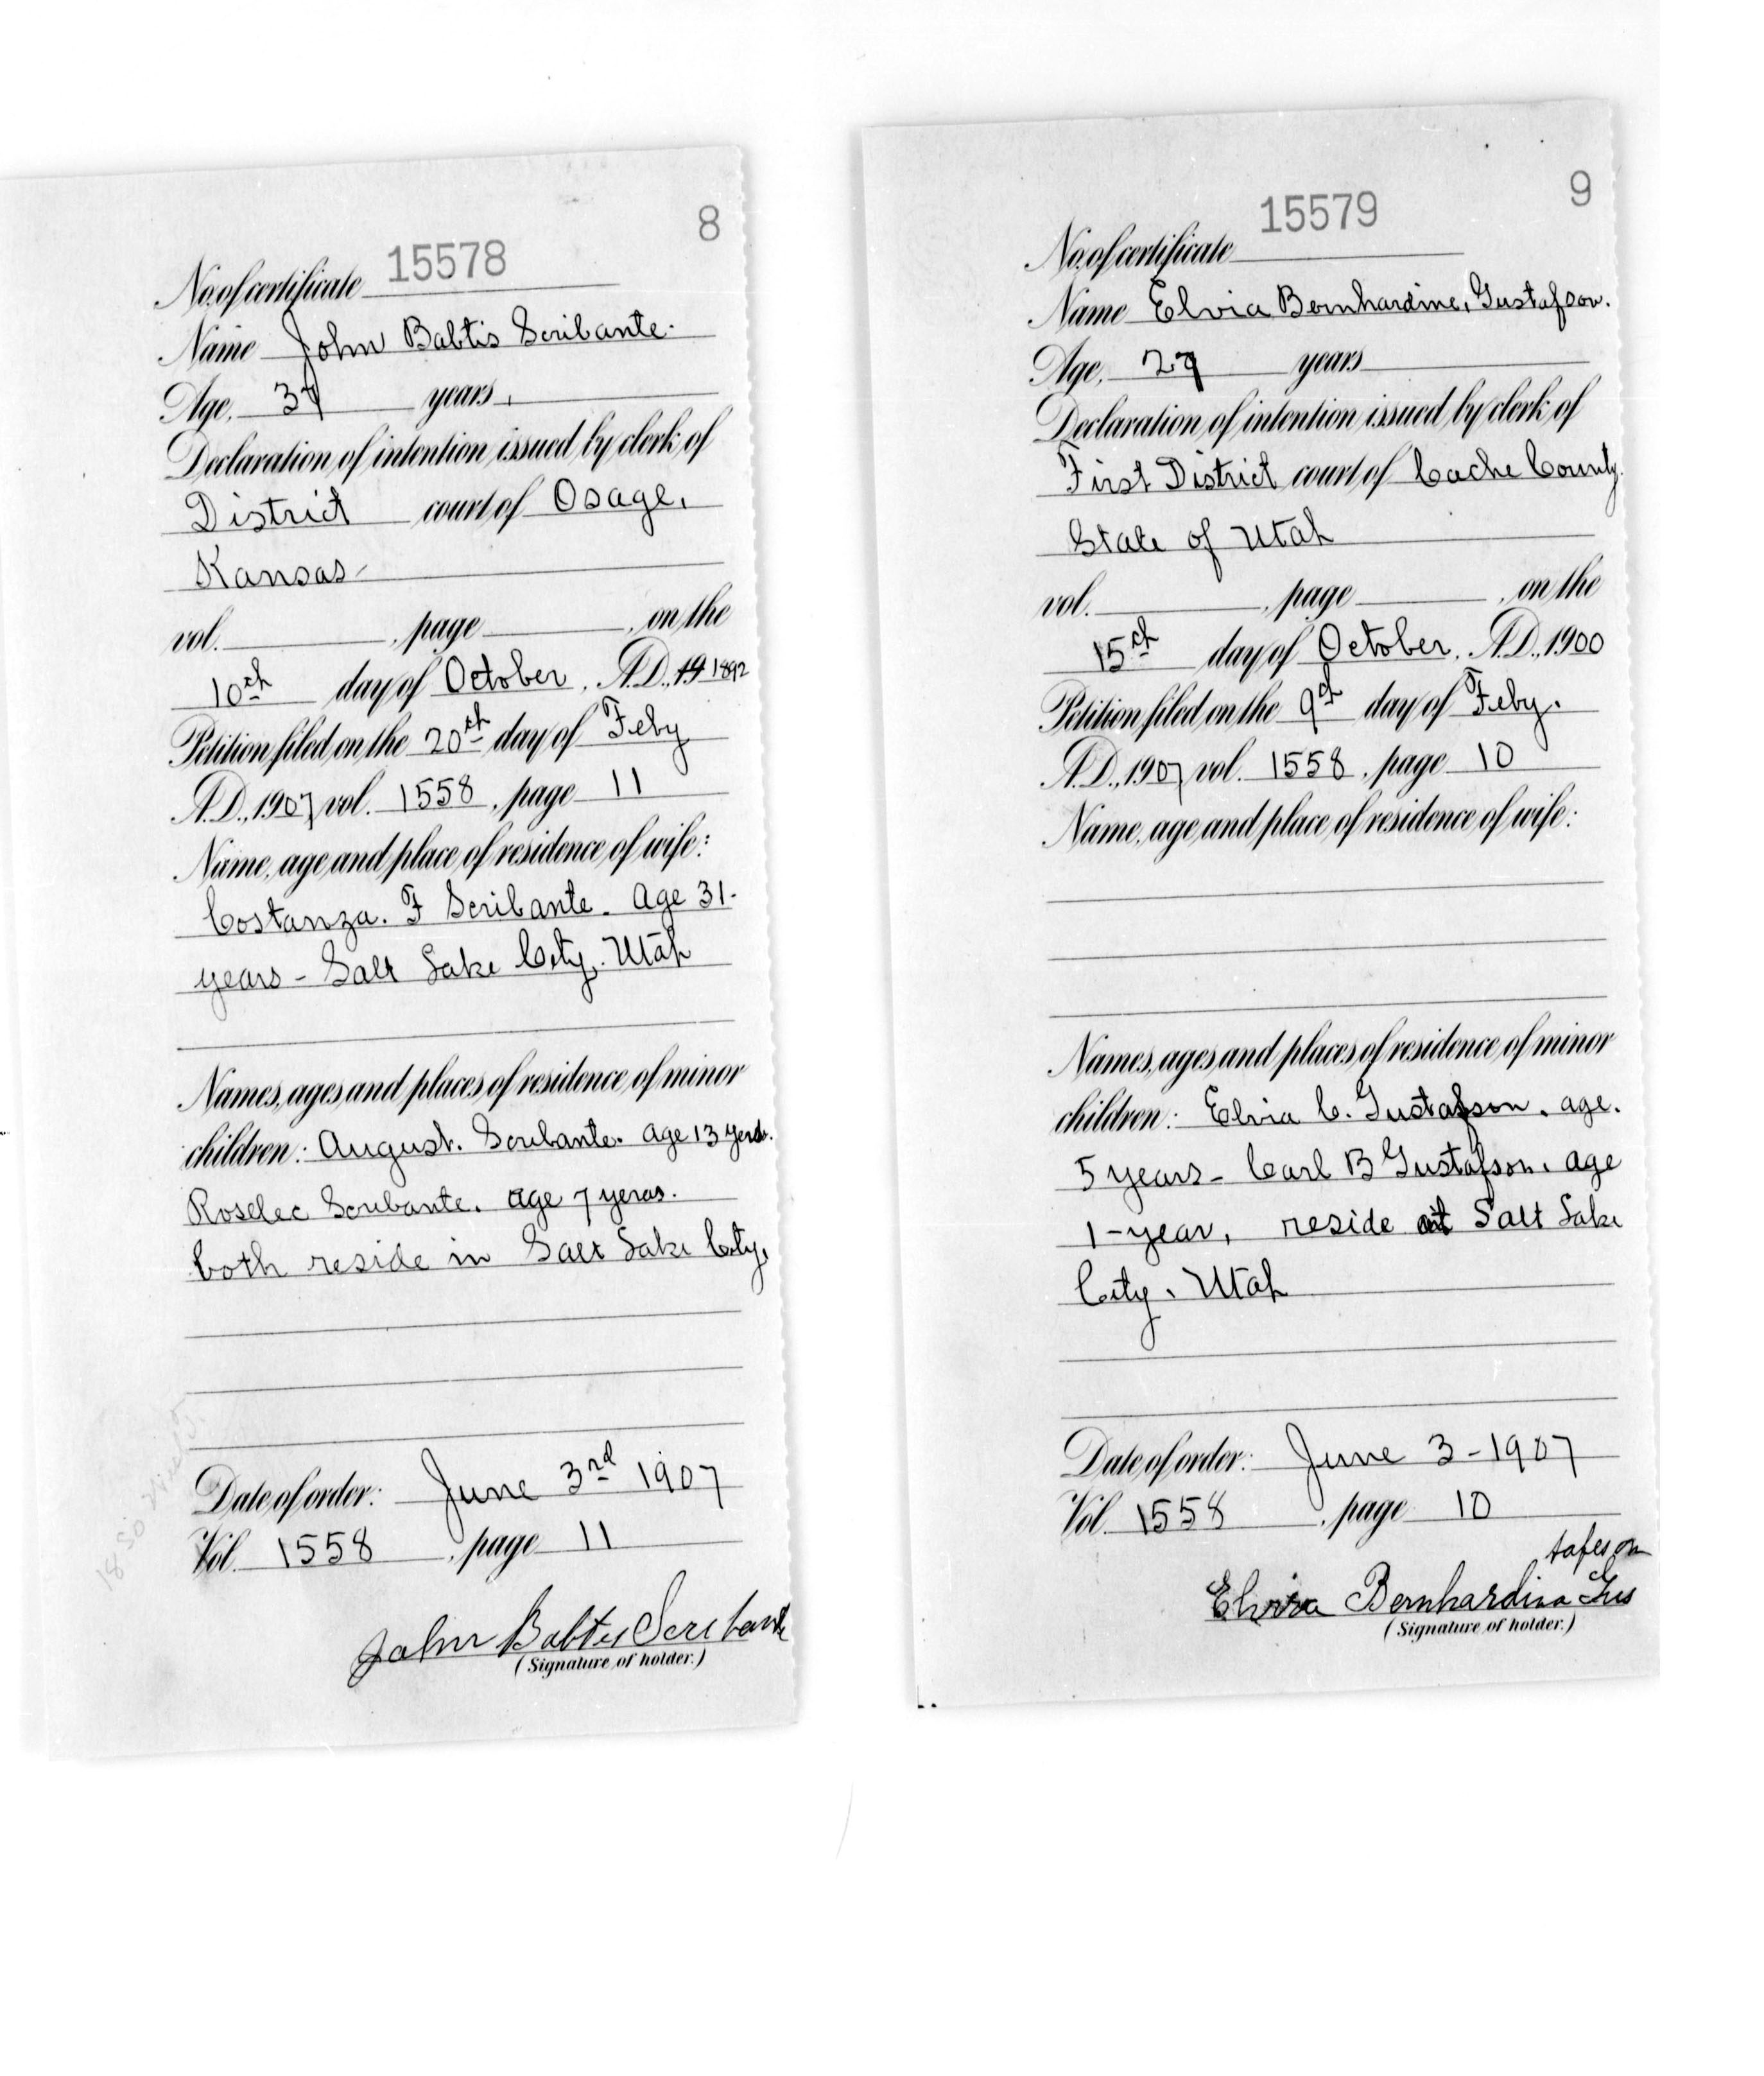 8
No. of certificate 15578
Name John Babtis Scribante.
Age, 37 years.
Declaration of intention issued by clerk of
District court of Osage,
Kansas
vol. , page , on the
10th day of October, A.D., 19 1892
Petition filed on the 20th day of Feby
A.D., 1907, vol. 1558, page 11
Name, age and place of residence of wife:
Costanza. F Scribante. Age 31.
years - Salt Lake City. Utah
Names, ages and places of residence of minor
children: August. Scribante. age 13
Scribante. age 7 yeras.
both reside in Salt Lake City,
Date of order: June 3rd 1907
Vol. 1558, page 11
John Babtis Scribante
(Signature of holder.)
9
No. of certificate 15579
Name Elvia Bernhardine, Gustafson.
Age, 27 years
Declaration of intention issued by clerk of
First District court of Cache County.
State of Utah
vol. , page , on the
15th day of October, A.D., 1900
Petition filed on the 9th day of Feby.
A.D., 1907, vol. 1558, page 10
Name, age and place of residence of wife:
Names, ages and places of residence of minor
children: Elvia C. Gustafson. age.
5 years - Carl B Gustafson. age
1-year, reside at Salt Lake
City. Utah
Date of order: June 3-1907
Vol. 1558, page 10
tafson
Bernhardina Gus
(Signature of holder.)